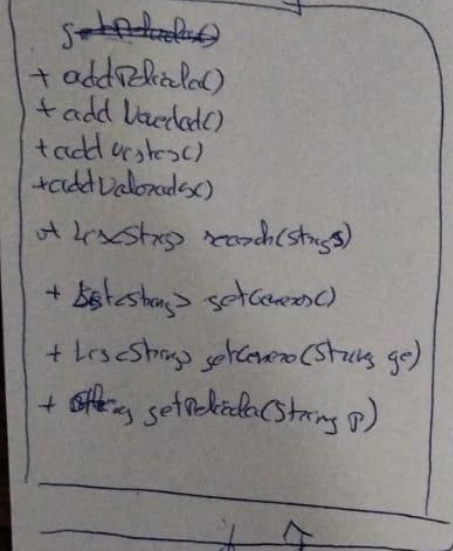 + addPelicula()
+ add Novedad()
+ add Vistos()
+ addValorados()
+ List<String> search(String s)
+ List<String> getGeneros()
+ List<String> getGenero(String ge)
+ String getPelicula(String p)